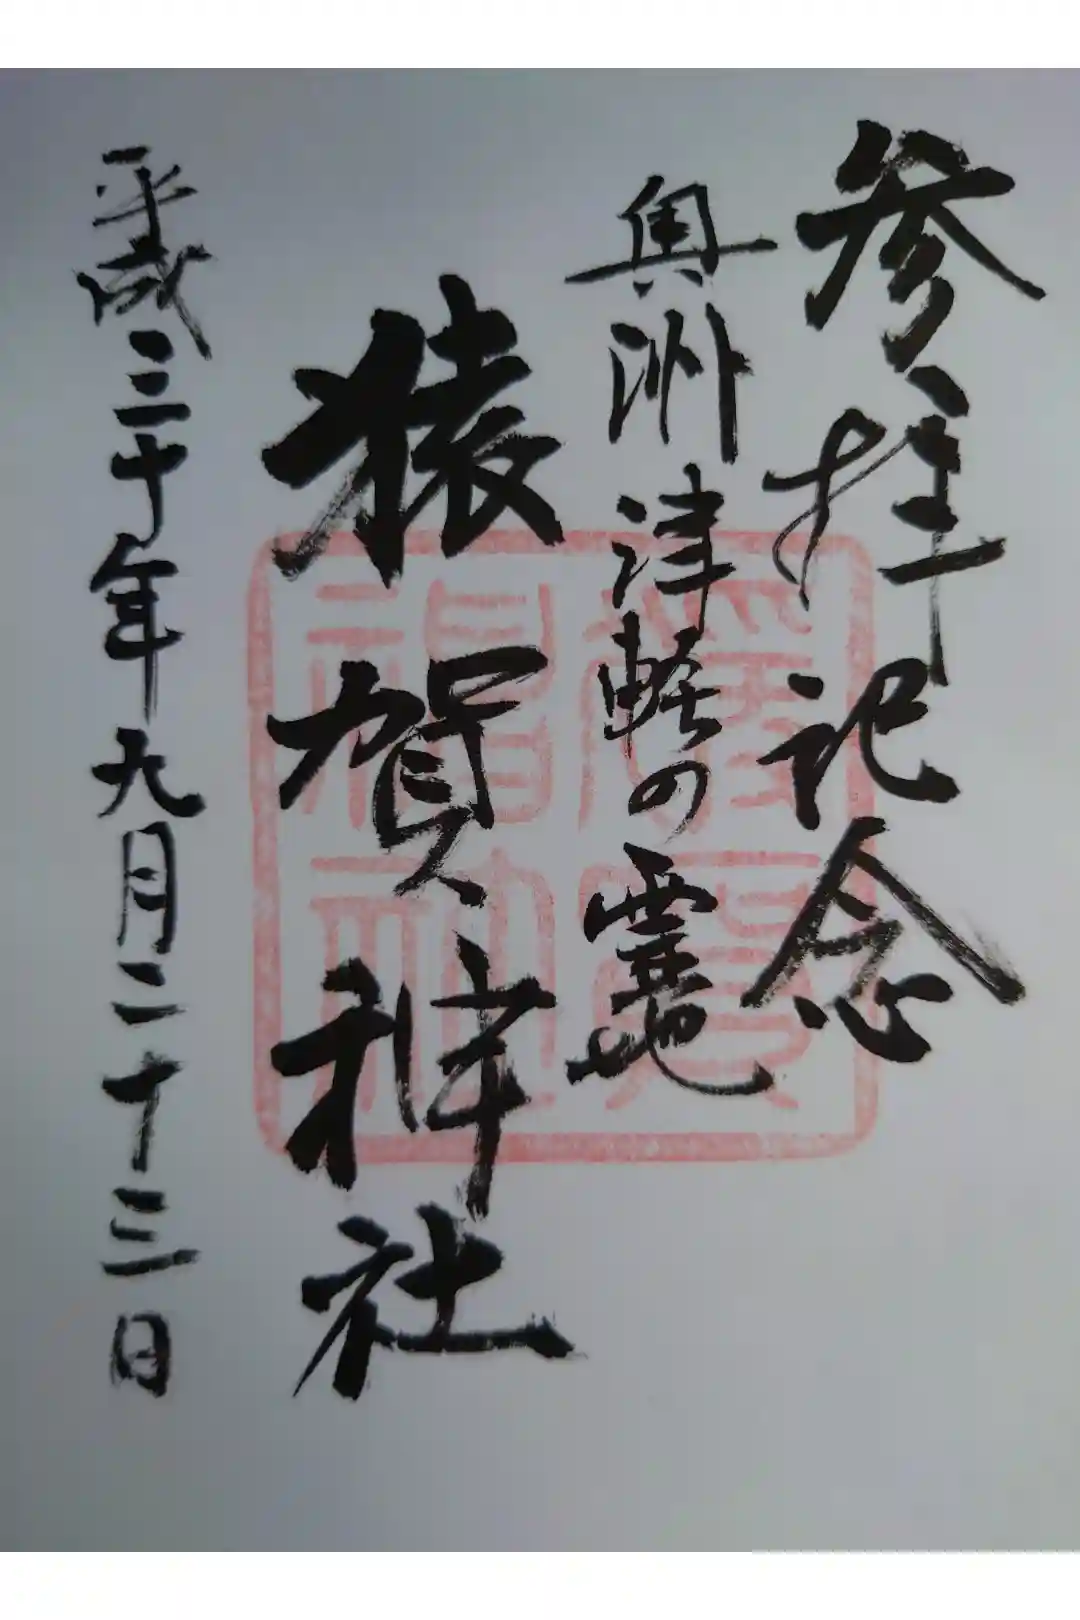 参拝記念
奥州津軽の霊地
猿賀神社
平成三十年九月二十三日